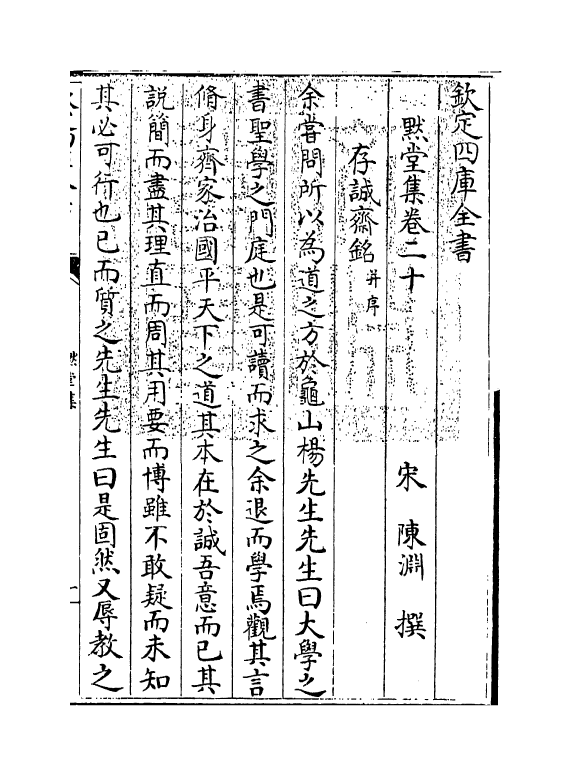 欽定四庫全書
默堂集卷二十
宋 陳淵 撰
存誠齋銘 并序
余嘗問所以為道之方於龜山楊先生先生曰大學之
書聖學之門庭也是可讀而求之余退而學焉觀其言
脩身齊家治國平天下之道其本在於誠吾意而已其
說簡而盡其理直而周其用要而博雖不敢疑而未知
其必可行也已而質之先生先生曰是固然又辱教之